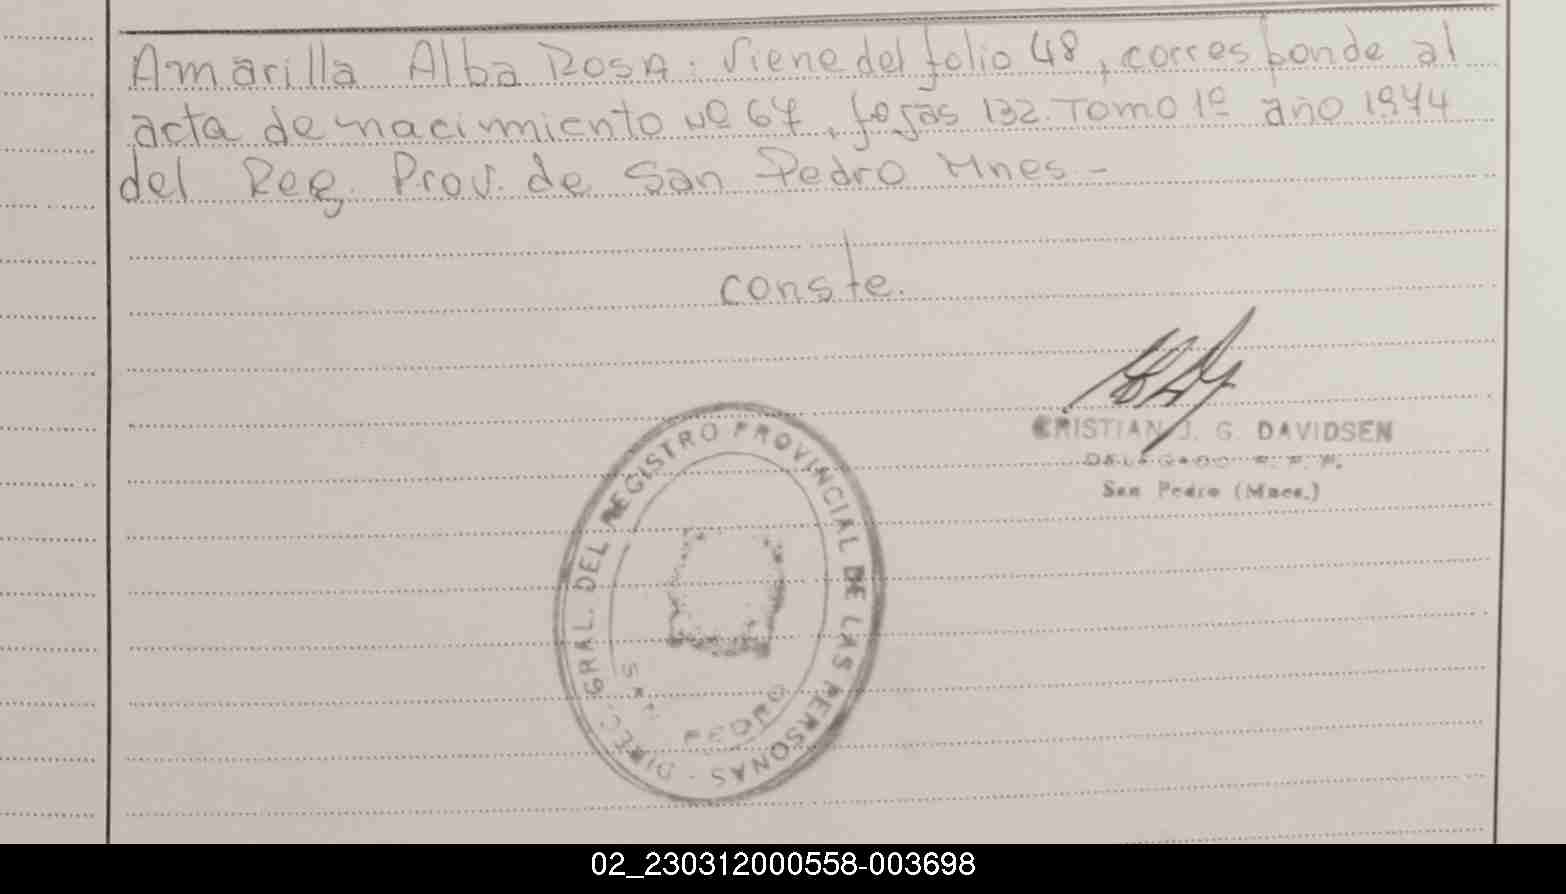 Amarilla Alba Rosa: Viene del folio 48, corresponde al
acta de nacimiento Nº 67, fojas 132. Tomo 1º año 1974
del Reg. Prov. de San Pedro Mnes-
conste.
CRISTIAN J. G. DAVIDSEN
DELEGADO
San Pedro (Mnes.)
DIREC. GRAL. DEL REGISTRO PROVINCIAL DE LAS PERSONAS -
SAN PEDRO
02_230312000558-003698